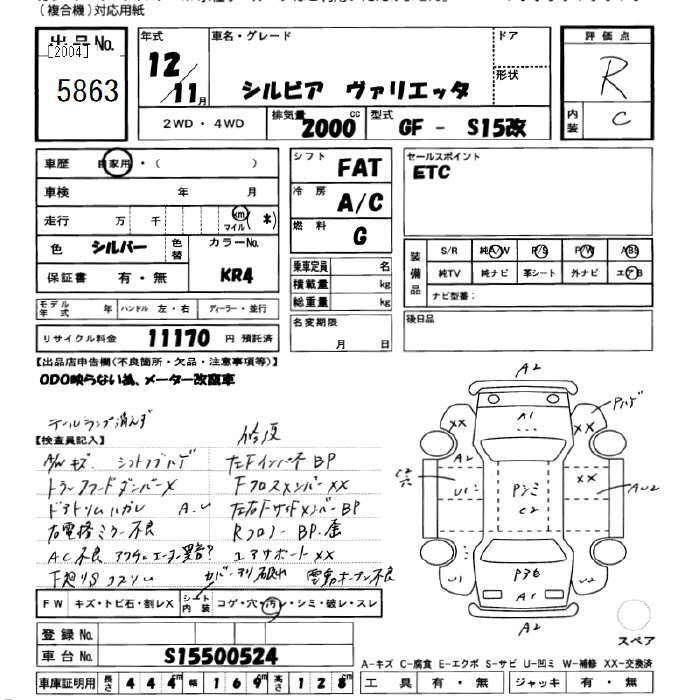 (複合機)対応用紙
出品No.
[2004]
5863
年式
12/11月
車名・グレード
シルビア ヴァリエッタ
ドア
形状
2WD・4WD
排気量 2000 cc
型式 GF - S15改
評価点
R
内装 C
車歴 自家用・( )
車検 年 月
走行 万 千 km マイル (*)
色 シルバー 色替
カラーNo. KR4
保証書 有・無
シフト FAT
冷房 A/C
燃料 G
乗車定員 名
積載量 kg
総重量 kg
名変期限
月 日
セールスポイント
ETC
装備品
S/R 純A/W P/S P/W ABS
純TV 純ナビ 革シート 外ナビ エアB
ナビ型番:
後日品
モデル年式 年 ハンドル 左・右 ディーラー・並行
リサイクル料金 11170 円 預託済
【出品店申告欄(不良箇所・欠品・注意事項等)】
ODO映らない為、メーター改竄車
テールランプ消えず
【検査員記入】
修復
A/Wキズ シフトノブハゲ
左Fインパネ BP
トランクフードダンパーX
Fクロスメンバー XX
ドアトリムハガレ A.U
左右FサイドメンバーBP
右電格ミラー不良
Rフロアー BP.歪
AC不良
コアサポート XX
電動オープン不良
A2
A1
XX
XX
A2
U1
Pシミ
C2
XX
AU2
U2
U1
A1
A2
FW キズ・トビ石・割レX
シート内装 コゲ・穴・汚レ・シミ・破レ・スレ
登録No.
車台No. S15500524
車庫証明用 長さ 444 幅 169 高さ 128 cm
スペア
A-キズ C-腐食 E-エクボ S-サビ U-凹ミ W-補修 XX-交換済
工具 有・無 ジャッキ 有・無